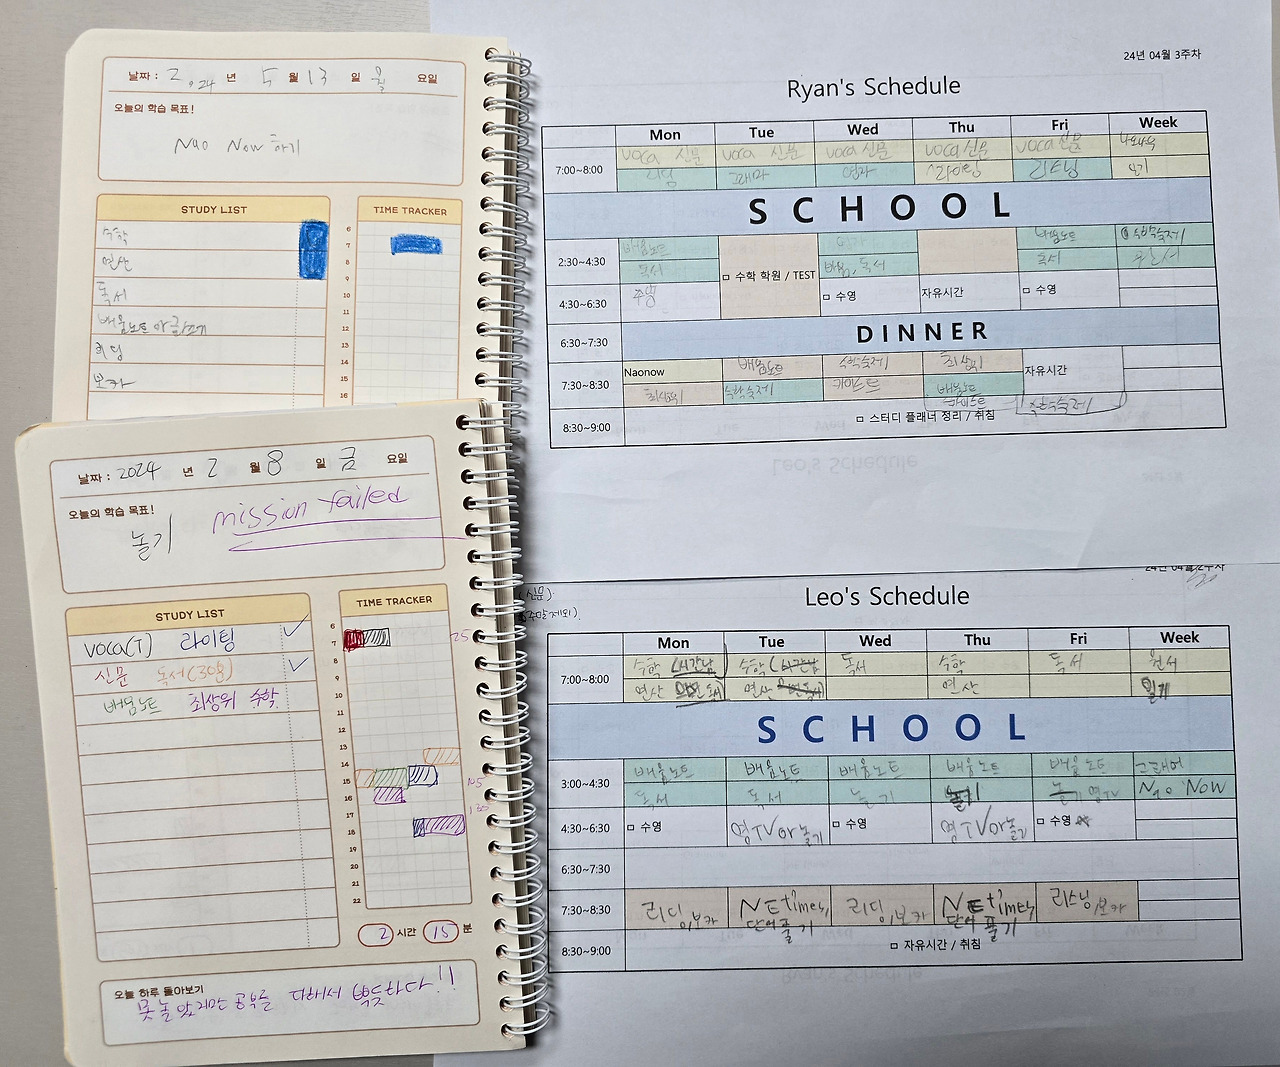 날짜 : 2024 년 5 월 13 일 월 요일
오늘의 학습 목표!
Nao Now 하기
STUDY LIST
TIME TRACKER
수학
연산
독서
배움노트 아 글쓰기
리딩
보카
6
7
8
9
10
11
12
13
14
15
16
날짜 : 2024 년 2 월 8 일 금 요일
오늘의 학습 목표!
놀기 mission failed
STUDY LIST
TIME TRACKER
voca(T) 라이팅
신문 독서(30분)
배움노트 최상위 수학
6
7
8
9
10
11
12
13
14
15
16
17
18
19
20
21
22
2 시간 15 분
오늘 하루 돌아보기
못 놀았지만 공부를 다해서 뿌듯하다!!
24년 04월 3주차
Ryan's Schedule
Mon Tue Wed Thu Fri Week
7:00~8:00
voca 신문 voca 신문 voca 신문 voca 신문 voca 신문 나오나우
리딩 그래머 영작 라이팅 리스닝 일기
SCHOOL
2:30~4:30
배움노트 배움노트 수학숙제
독서 □ 수학 학원 / TEST 배움, 독서 독서 독서
4:30~6:30
수영 □ 수영 자유시간 □ 수영
6:30~7:30 DINNER
7:30~8:30
Naonow 배움노트 수학숙제 최상위 자유시간
최상위 수학숙제 배움노트
수학숙제
8:30~9:00 □ 스터디 플래너 정리 / 취침
24년 04월 2주차
(신문)
(주말제외)
Leo's Schedule
Mon Tue Wed Thu Fri Week
7:00~8:00
수학 (시간남 수학 (시간남 독서 수학 독서 독서
연산 연산 연산 일기
SCHOOL
3:00~4:30
배움노트 배움노트 배움노트 배움노트 배움노트 그래머
독서 독서 놀기 놀기 놀기 영TV Nao Now
4:30~6:30
□ 수영 영TV or 놀기 □ 수영 영TV or 놀기 □ 수영
6:30~7:30
7:30~8:30
리딩, 보카 NE times, 단어 풀기 리딩, 보카 NE times, 단어 풀기 리스닝, 보카
8:30~9:00 □ 자유시간 / 취침